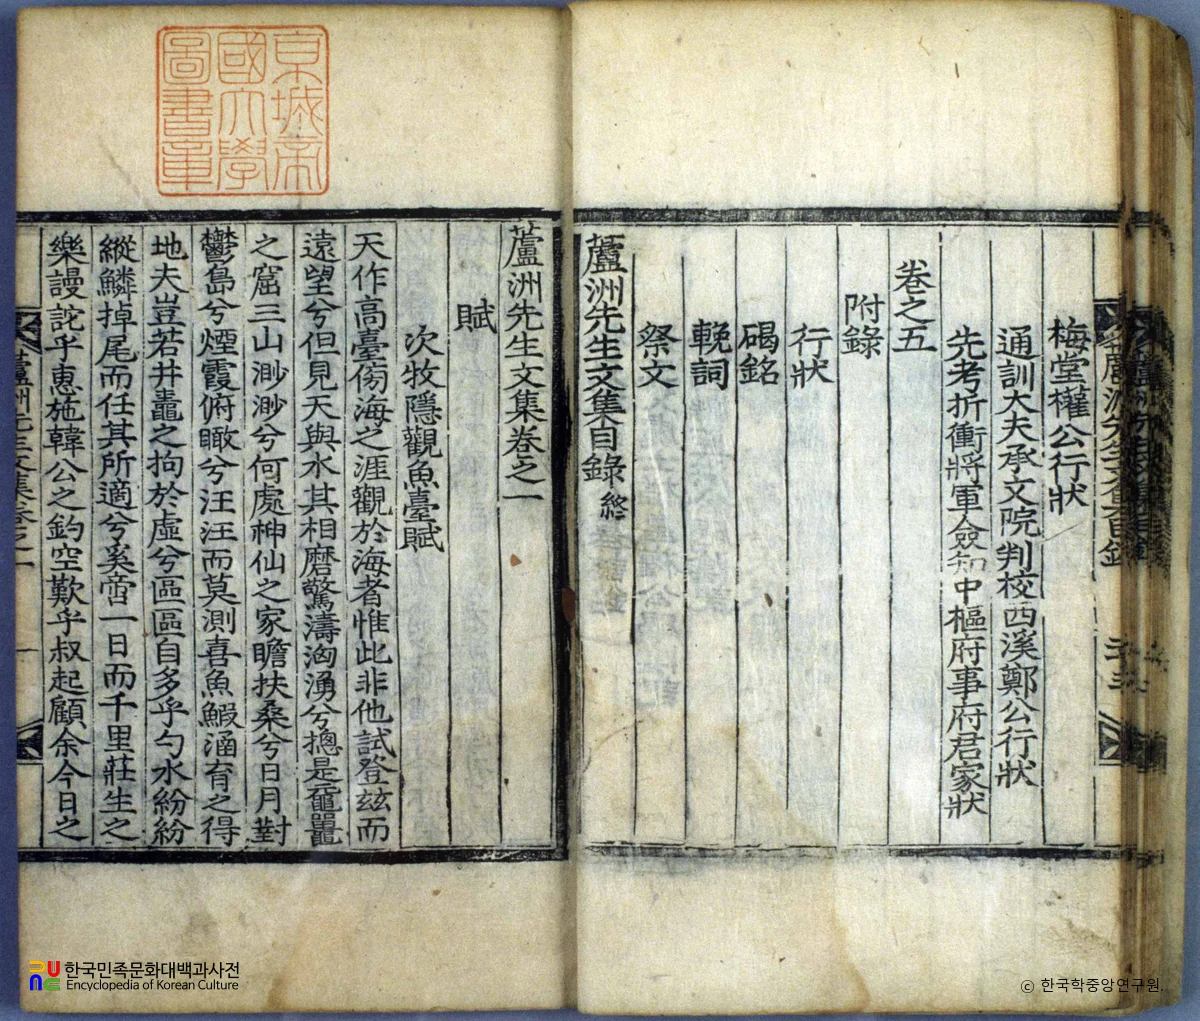 梅堂權公行狀
通訓大夫承文院判校西溪鄭公行狀
先考折衝將軍僉知中樞府事府君家狀
卷之五
附錄
行狀
碣銘
輓詞
祭文
蘆洲先生文集目錄 終
京城帝
國大學
圖書章
蘆洲先生文集卷之一
賦
次牧隱觀魚臺賦
天作高臺傍海之涯觀於海者惟此非他試登玆而
遠望兮但見天與水其相磨驚濤洶湧兮摠是黿鼉
之窟三山渺渺兮何處神仙之家瞻扶桑兮日月對
鬱島兮煙霞俯瞰兮汪汪而莫測喜魚鰕涵育之得
地夫豈若井鼃之拘於虛兮區區自多乎勺水紛紛
縱鱗掉尾而任其所適兮奚啻一日而千里莊生之
樂謾詑乎惠施韓公之釣空歎乎叔起顧余今日之
蘆洲先生文集卷之一
한국민족문화대백과사전
Encyclopedia of Korean Culture
ⓒ 한국학중앙연구원.